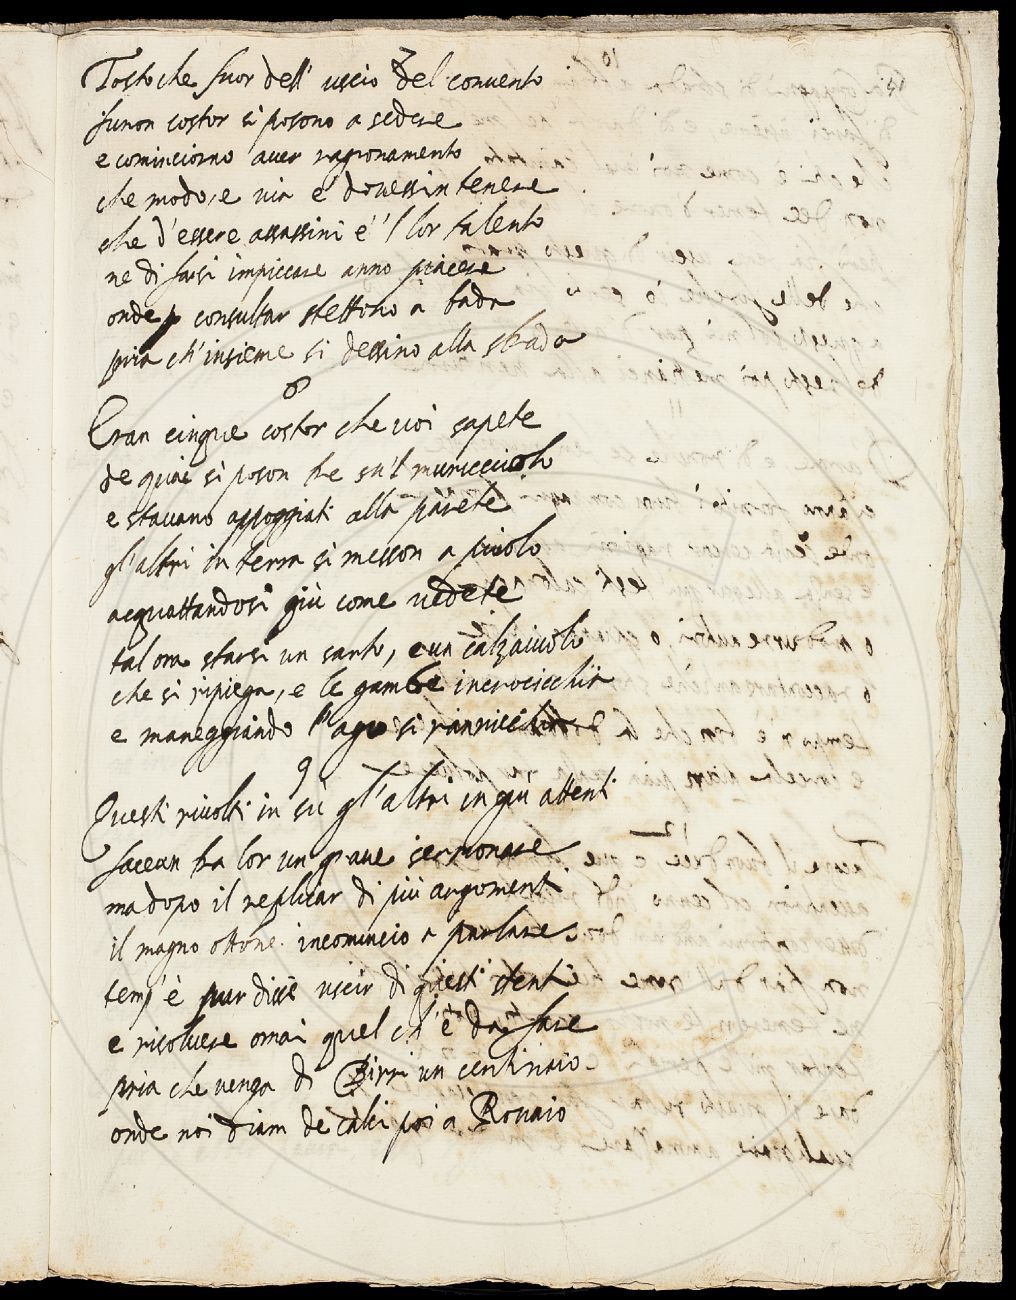 7
Tosto che fuor dell' uscio del conuento
furon costor si posono a sedere
e cominciorno auer ragionamento
che modo, e uia e' douessin tenere
che d'essere assassini è 'l lor talento
ne di farsi impiccare anno piacere
onde p consultar stettono a bada
pria ch' insieme si dessino alla strada
8
Eran cinque costor che uoi sapete
de quai si poson tre su'l muricciuolo
e stauano appoggiati alla parete
gl'altri in terra si messon a piuolo
acquattandosi giù come uedete
tal ora starsi un sarto, e un calzaiuolo
che si ripiega, e le gambe incrocicchia
e maneggiando l'ago si rannicchia
9
Questi riuolti in sù gl'altri in giu attenti
facean tra lor un graue sermonare
ma dopo il replicar di più argomenti
il magno ottone incomincio a parlare
temp' è pur disse uscir di questi stenti
e risoluere omai quel ch' è da fare
pria che uenga di Birri un centinaio
onde noi diam de calci poi a Rouaio